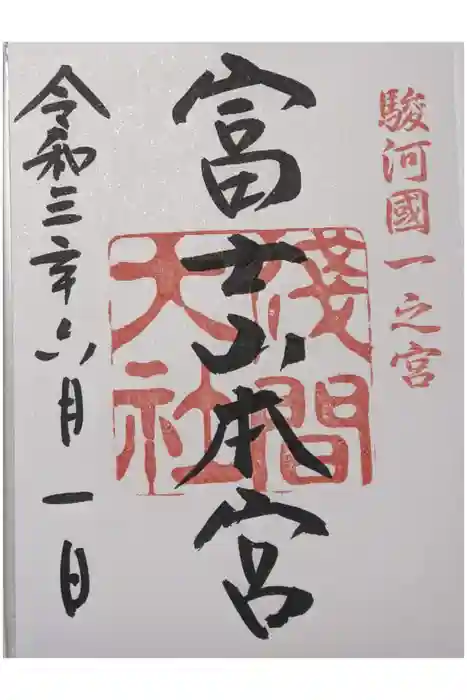 駿河國一之宮
富士山本宮
淺間
大社
令和三年六月一日